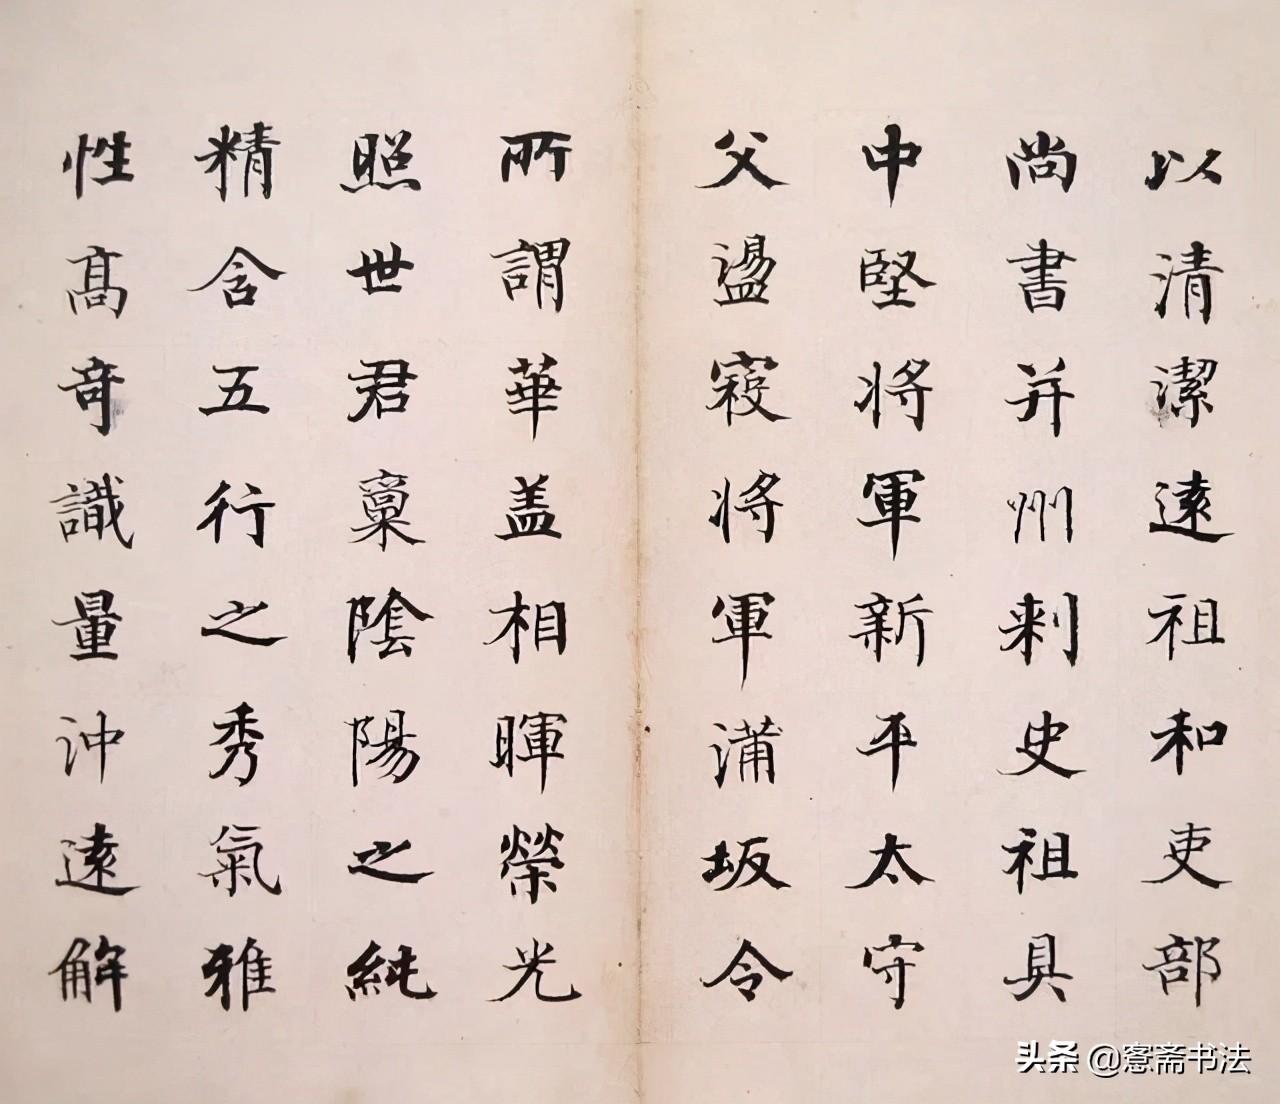 以清潔遠祖和吏部
尚書并州刺史祖具
中堅將軍新平太守
父盪寇將軍蒲坂令
所謂華盖相暉榮光
照世君稟陰陽之純
精含五行之秀氣雅
性髙竒識量沖遠解
头条 @窓斋书法